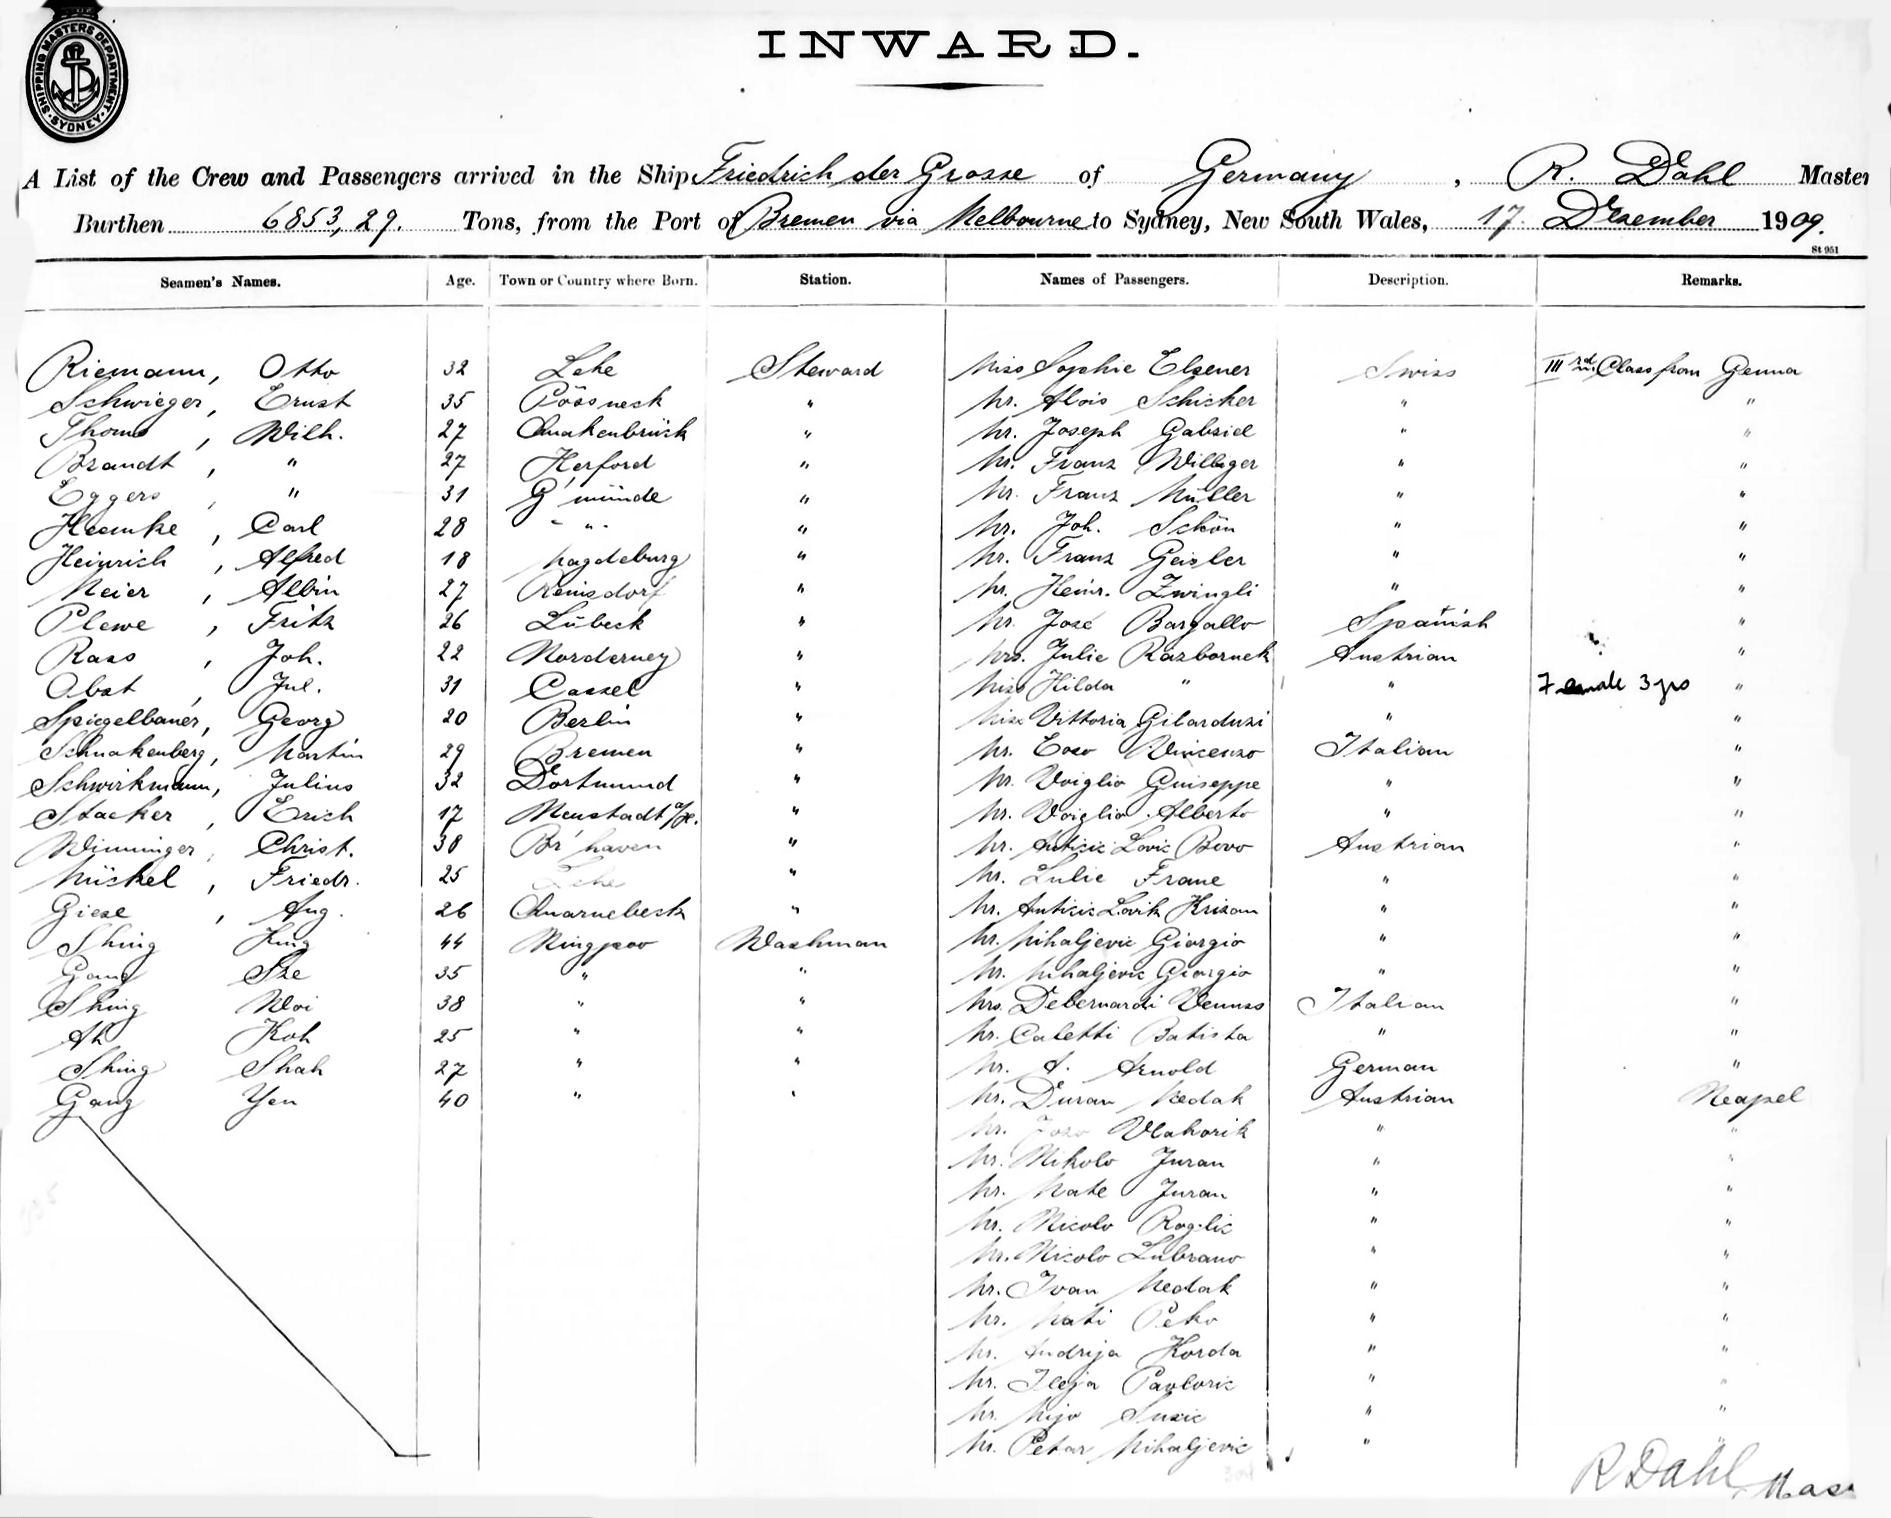 SHIPPING MASTERS DEPARTMENT. SYDNEY.
INWARD.
A List of the Crew and Passengers arrived in the Ship Friedrich der Grosse of Germany, R. Dahl Master
Burthen 6853,29. Tons, from the Port of Bremen via Melbourne to Sydney, New South Wales, 17. Dezember 1909.
St 951
Seamen's Names. Age. Town or Country where Born. Station. Names of Passengers. Description. Remarks.
Riemann, Otto 32 Lehe Steward Miss Sophie Elsener Swiss III rd Class from Genua
Schwieger, Ernst 35 Pössneck " Mr. Alois Schicker " "
Thoms, Wilh. 27 Quakenbrück " Mr. Joseph Gabriel " "
Brandt, " 27 Herford " Mr. Franz Williger " "
Eggers, " 31 G'münde " Mr. Franz Müller " "
Heemke, Carl 28 " " Mr. Joh. Schön " "
Heinrich, Alfred 18 Magdeburg " Mr. Franz Geisler " "
Meier, Albin 27 Reinsdorf " Mr. Heinr. Zwingli " "
Plewe, Fritz 26 Lübeck " Mr. José Bargallo Spanish "
Rass, Joh. 22 Norderney " Mrs. Julie Razbornek Austrian "
Obst, Jul. 31 Cassel " Miss Hilda " " Female 3 yrs "
Spiegelbauer, Georg 20 Berlin " Miss Vittoria Gilarduzi " "
Schnakenberg, Martin 29 Bremen " Mr. Coso Vincenzo Italian "
Schwirkmann, Julius 32 Dortmund " Mr. Voiglio Guiseppe " "
Stacker, Erich 17 Neustadt " Mr. Voiglio Alberto " "
Winninger, Christ. 38 Br'haven " Mr. Anticic Lovic Bovo Austrian "
Mückel, Friedr. 25 Lehe " Mr. Lulic Frane " "
Giese, Aug. 26 Quarnebeck " Mr. Anticic Lovik Krizan " "
Shing King 44 Ningpoo Washman Mr. Mihaljevic Giorgio " "
Gang Sze 35 " " Mr. Mihaljevic Giorgio " "
Shing Woi 38 " " Mrs. Debernardi Italian "
Ah Koh 25 " " Mr. Caletti Batista " "
Shing Shah 27 " " Mr. A. Arnold German "
Gang Yen 40 " " Mr. Duran Medak Austrian Neapel
Mr. Jozo Vlahovik " "
Mr. Nikolo Juran " "
Mr. Mate Juran " "
Mr. Nicolo Roglic " "
Mr. Nicolo Lubrano " "
Mr. Ivan Medak " "
Mr. Mati Peko " "
Mr. Andrija Korda " "
Mr. Ileja Pavlovic " "
Mr. Mijo Susic " "
Mr. Petar Mihaljevic "
R Dahl, Mas